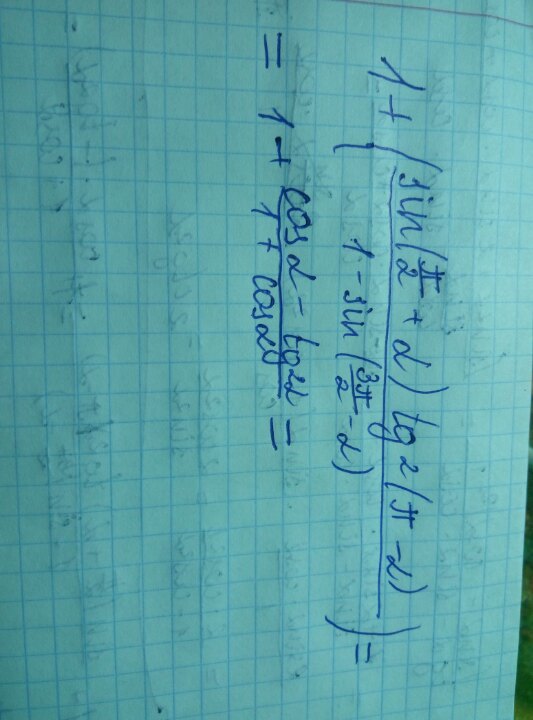 1 + ( sin(π/2 + α) tg2(π - α) / 1 - sin(3π/2 - α) ) =
= 1 + cosα - tg2α / 1 + cosα =